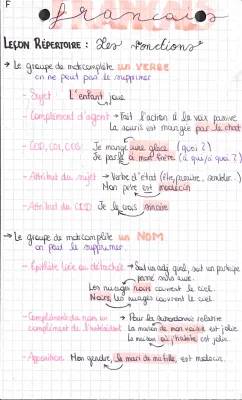 F
français
LEÇON RÉPERTOIRE : Les fonctions
→ Le groupe de mots complète un VERBE
on ne peut pas le supprimer
- Sujet L'enfant joue
- Complément d'agent → Fait l'action à la voix passive
La souris est mangée par le chat
- COD, COI, COS Je mange une glace (quoi ?)
Je parle à mon frère (à qui/à quoi ?)
- Attribut du sujet → Verbe d'état (être, paraître, sembler..)
Mon père est médecin
- Attribut du COD Je le crois sincère
→ Le groupe de mots complète un NOM
on peut le supprimer
- Épithète liée ou détachée → Soit un adj. qualif, soit un participe
passé sans auxe.
Les nuages noirs couvrent le ciel.
Noirs, les nuages couvrent le ciel.
- Complément du nom ou → Pour la subordonnée relative
complément de l'antécédent La maison de mon voisin est jolie.
La maison où j'habite est jolie.
- Apposition Mon gendre, le mari de ma fille, est médecin.